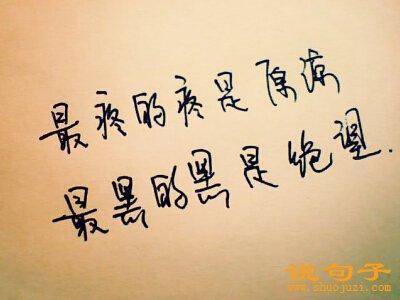 最疼的疼是原谅
最黑的黑是绝望.
说句子
www.shuojuzi.com